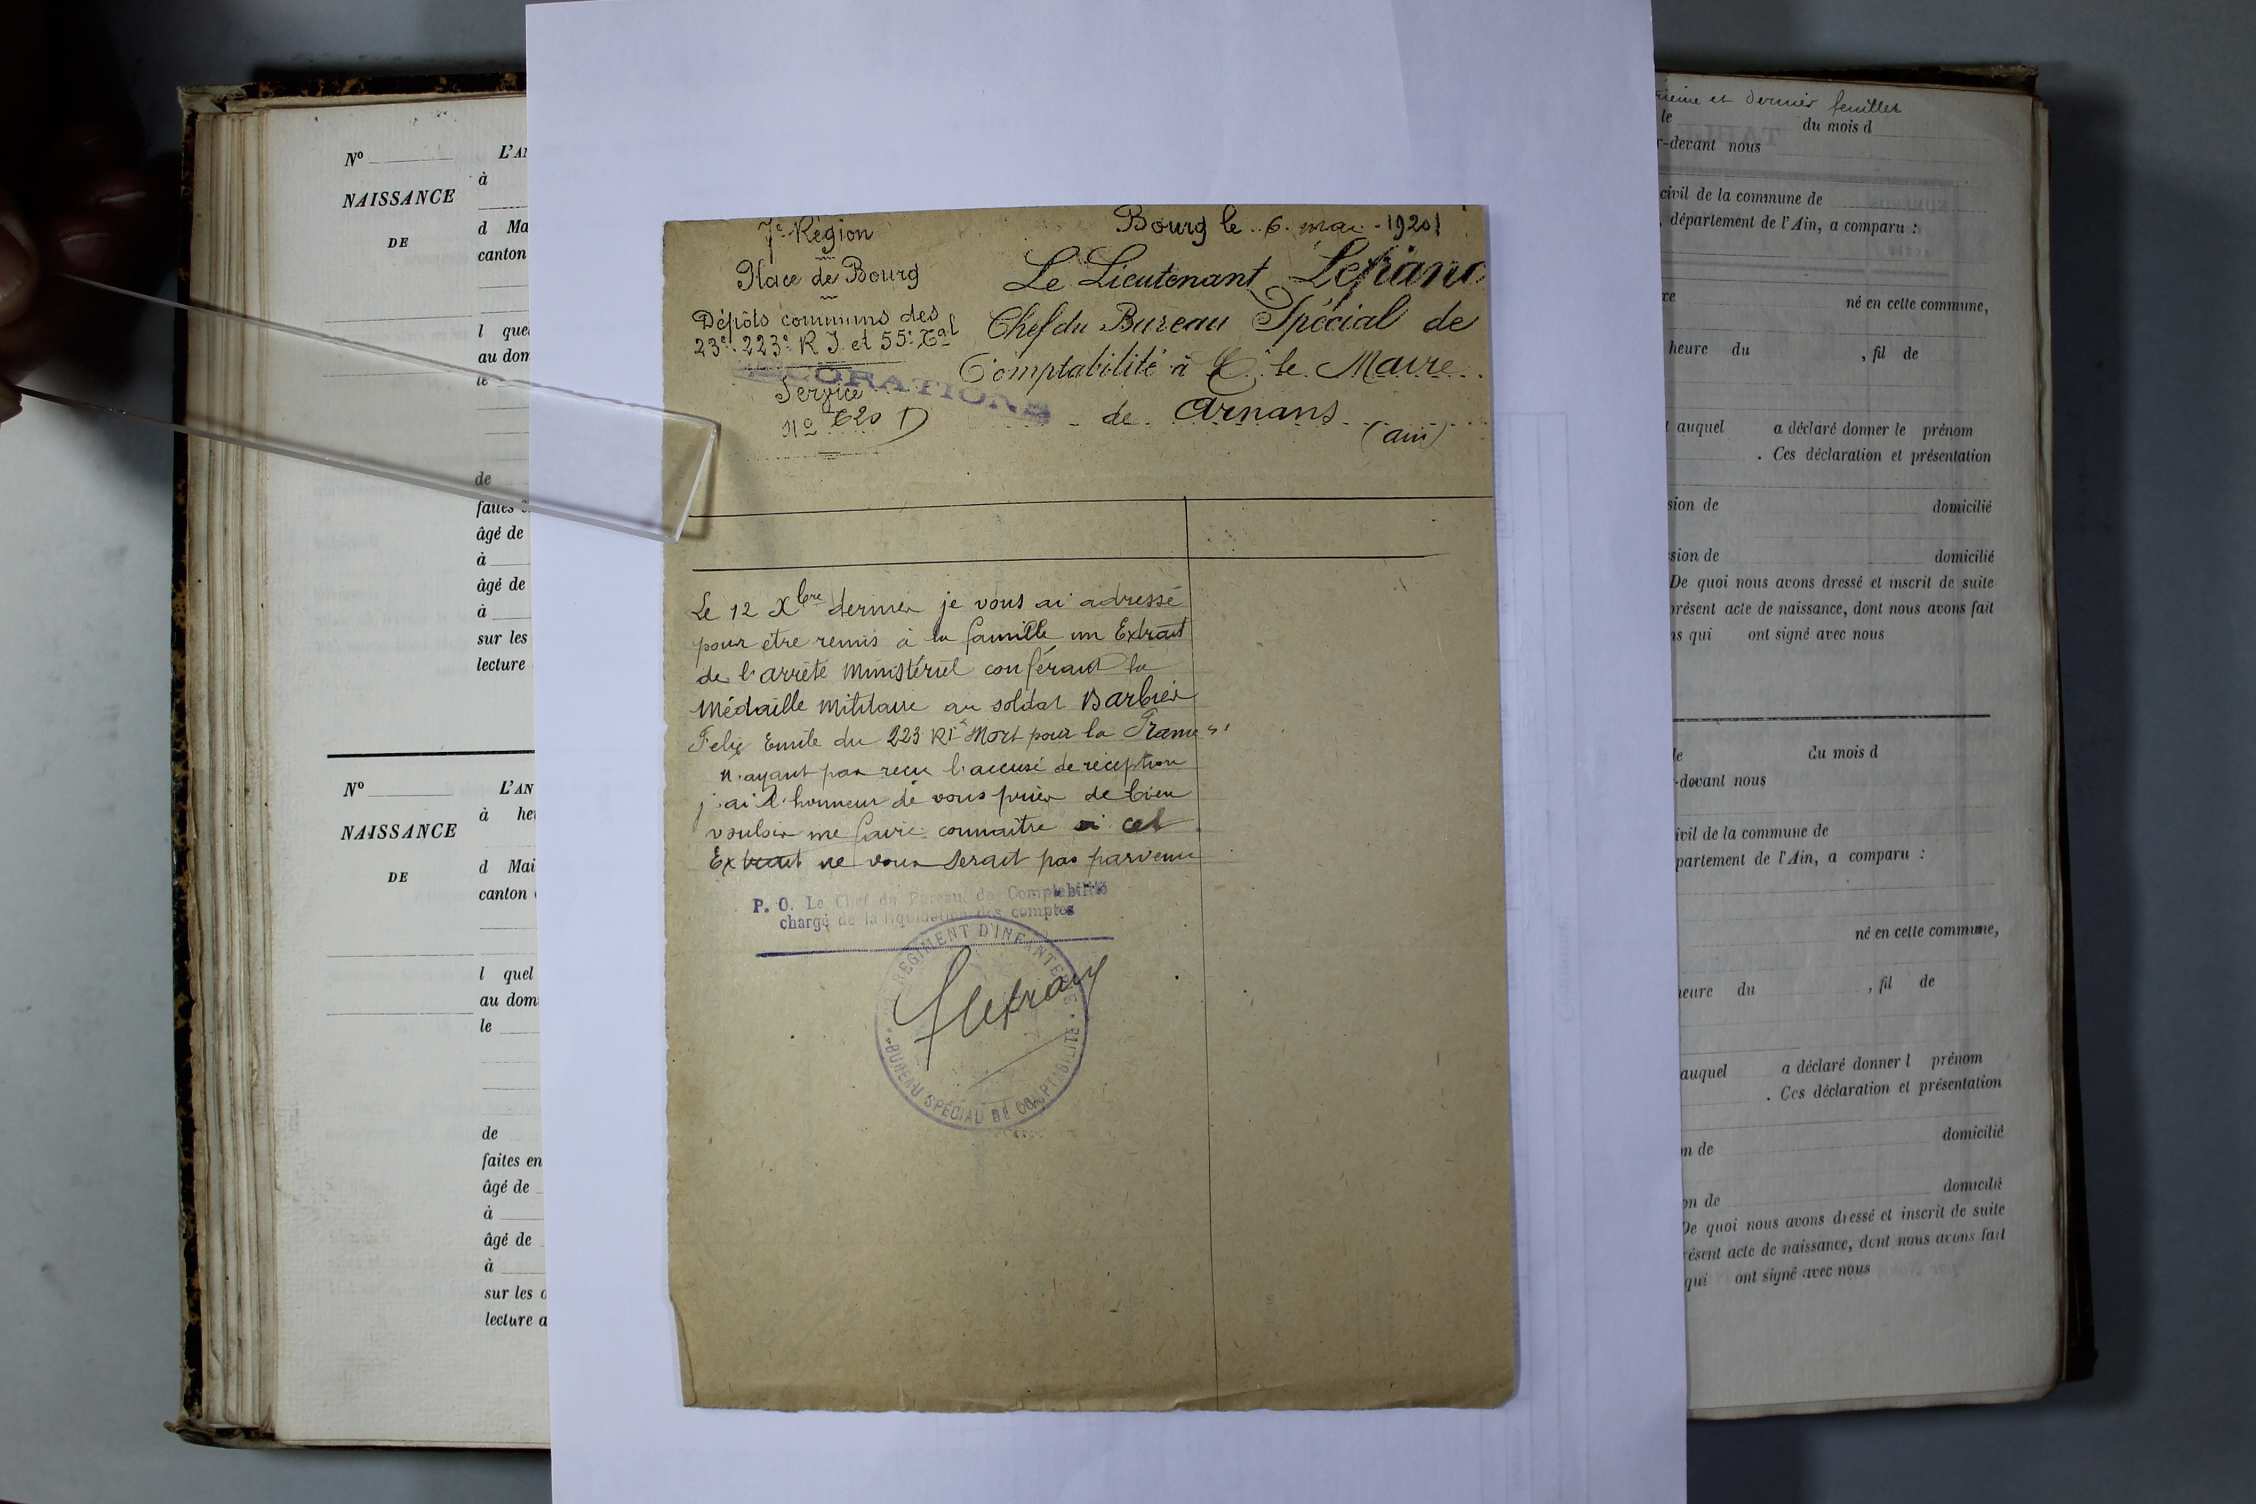 7e Région
Place de Bourg
Dépôts communs des
23e 223e R I et 55e Tal
DÉCORATIONS
Service
No 620 D
Bourg le 6 mai 1920
Le Lieutenant Lefranc
Chef du Bureau Spécial de
Comptabilité à M. le Maire
de Arnans
(ain)
Le 12 Xbre dernier je vous ai adressé
pour être remis à la famille un Extrait
de l'arrêté Ministériel conférant la
Médaille Militaire au soldat Barbier
Felix Emile du 223 RI Mort pour la France
n'ayant pas reçu l'accusé de réception
j'ai l'honneur de vous prier de bien
vouloir me faire connaître si cet
Extrait ne vous serait pas parvenu
P. O. Le Chef du Bureau de Comptabilité
chargé de la liquidation des comptes
RÉGIMENT D'INFANTERIE
BUREAU SPÉCIAL DE COMPTABILITÉ
Lefranc
No
NAISSANCE
DE
L'AN
à
d Ma
canton
l que
au dom
le
de
faites
âgé de
à
âgé de
à
sur les
lecture
No
NAISSANCE
DE
L'AN
à heu
d Mai
canton
l quel
au dom
le
de
faites en
âgé de
à
âgé de
à
sur les d
lecture a
et dernier feuillet
le du mois d
-devant nous
civil de la commune de
, département de l'Ain, a comparu :
né en cette commune,
heure du , fil de
auquel a déclaré donner le prénom
. Ces déclaration et présentation
sion de domicilié
sion de domicilié
De quoi nous avons dressé et inscrit de suite
présent acte de naissance, dont nous avons fait
ns qui ont signé avec nous
le du mois d
-devant nous
ivil de la commune de
partement de l'Ain, a comparu :
né en cette commune,
heure du , fil de
auquel a déclaré donner l prénom
. Ces déclaration et présentation
on de domicilié
on de domicilié
De quoi nous avons dressé et inscrit de suite
résent acte de naissance, dont nous avons fait
qui ont signé avec nous